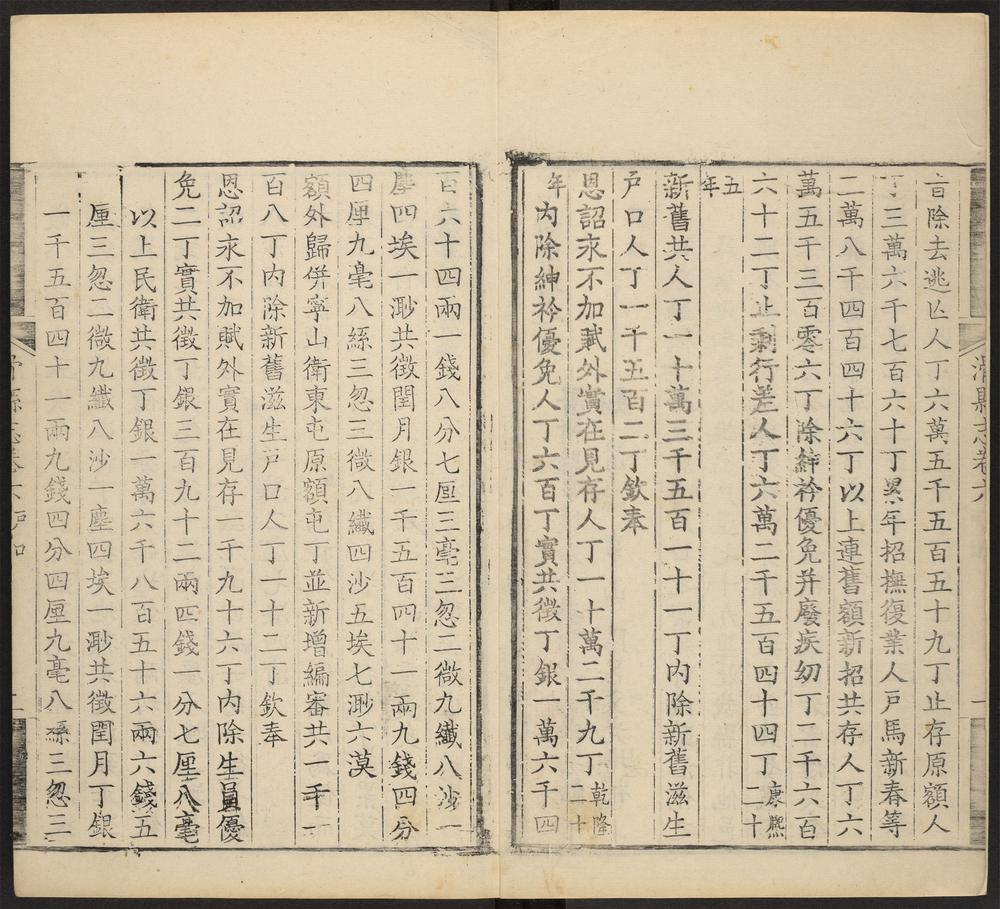 除去逃亾人丁六萬五千五百五十九丁止存原額人
丁三萬六千七百六十丁累年招撫復業人戸馬新春等
二萬八千四百四十六丁以上連舊額新招共存人丁六
萬五千三百零六丁除紳衿優免并廢疾幼丁二千六百
六十二丁止剩行差人丁六萬二千五百四十四丁康熙二十
五年
新舊共人丁一十萬三千五百一十一丁内除新舊滋生
戸口人丁一千五百二丁欽奉
恩詔永不加賦外實在見存人丁一十萬二千九丁乾隆二十
年内除紳衿優免人丁六百丁實共徵丁銀一萬六千四
滑縣志卷六
一
百六十四兩一錢八分七厘三毫三忽二微九纖八沙一
塵四埃一渺共徵閏月銀一千五百四十一兩九錢四分
四厘九毫八絲三忽三微八纖四沙五埃七渺六漠
額外歸併寧山衛東屯原額屯丁並新增編審共一千一
百八丁内除新舊滋生戸口人丁一十二丁欽奉
恩詔永不加賦外實在見存一千九十六丁内除生員優
免二丁實共徵丁銀三百九十二兩四錢一分七厘八毫
以上民衛共徵丁銀一萬六千八百五十六兩六錢五
厘三忽二微九纖八沙一塵四埃一渺共徵閏月丁銀
一千五百四十一兩九錢四分四厘九毫八絲三忽三
滑縣志卷六 戸口
二